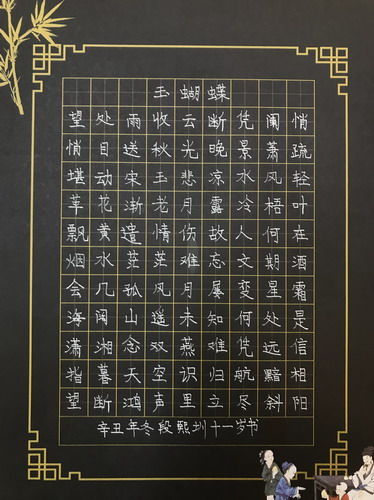 玉蝴蝶
望处雨收云断凭阑悄
悄目送秋光晚景萧疏
堪动宋玉悲凉水风轻
苹花渐老月露冷梧叶
飘黄遣情伤故人何在
烟水茫茫难忘文期酒
会几孤风月屡变星霜
海阔山遥未知何处是
潇湘念双燕难凭远信
指暮天空识归航黯相
望断鸿声里立尽斜阳
辛丑年冬段熙圳十一岁书